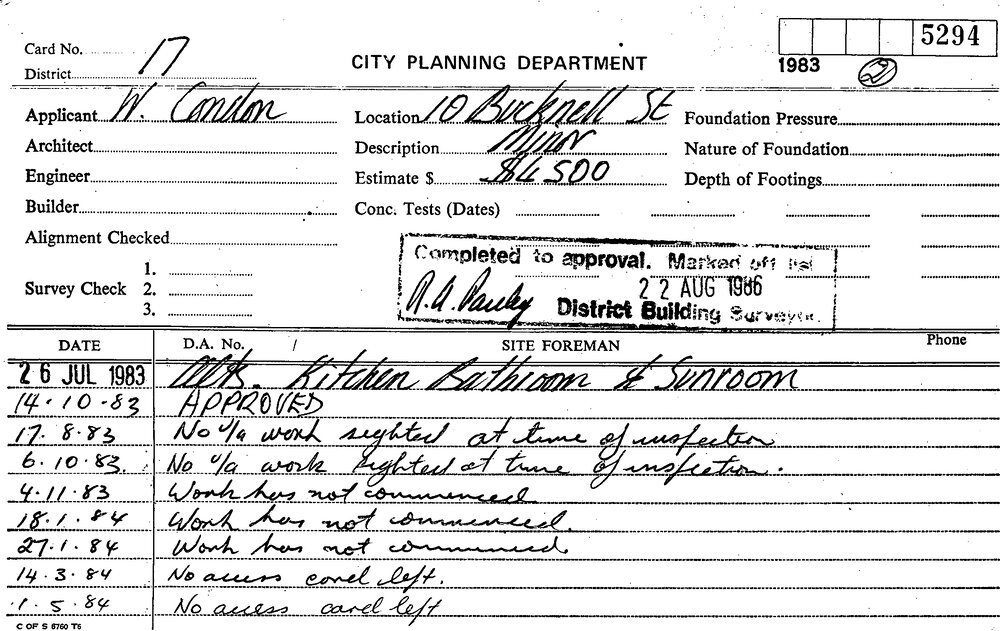 5294
Card No.
17
District
CITY PLANNING DEPARTMENT
1983
2
Applicant W. Condon
Location 10 Bucknell St
Foundation Pressure
Architect
Description Minor
Nature of Foundation
Engineer
Estimate $ $4500
Depth of Footings
Builder
Conc. Tests (Dates)
Alignment Checked
Completed to approval. Marked off list
Survey Check
1.
2.
3.
22 AUG 1986
District Building Surveyor.
DATE D.A. No. / SITE FOREMAN Phone
26 JUL 1983 Alts. Kitchen Bathroom & Sunroom
14.10.83 APPROVED
17.8.83 No u/a work sighted at time of inspection
6.10.83. No u/a work sighted at time of inspection.
4.11.83 Work has not commenced
18.1.84 Work has not commenced.
27.1.84 Work has not commenced
14.3.84 No access card left.
1.5.84 No access card left
C OF S 6760 T6